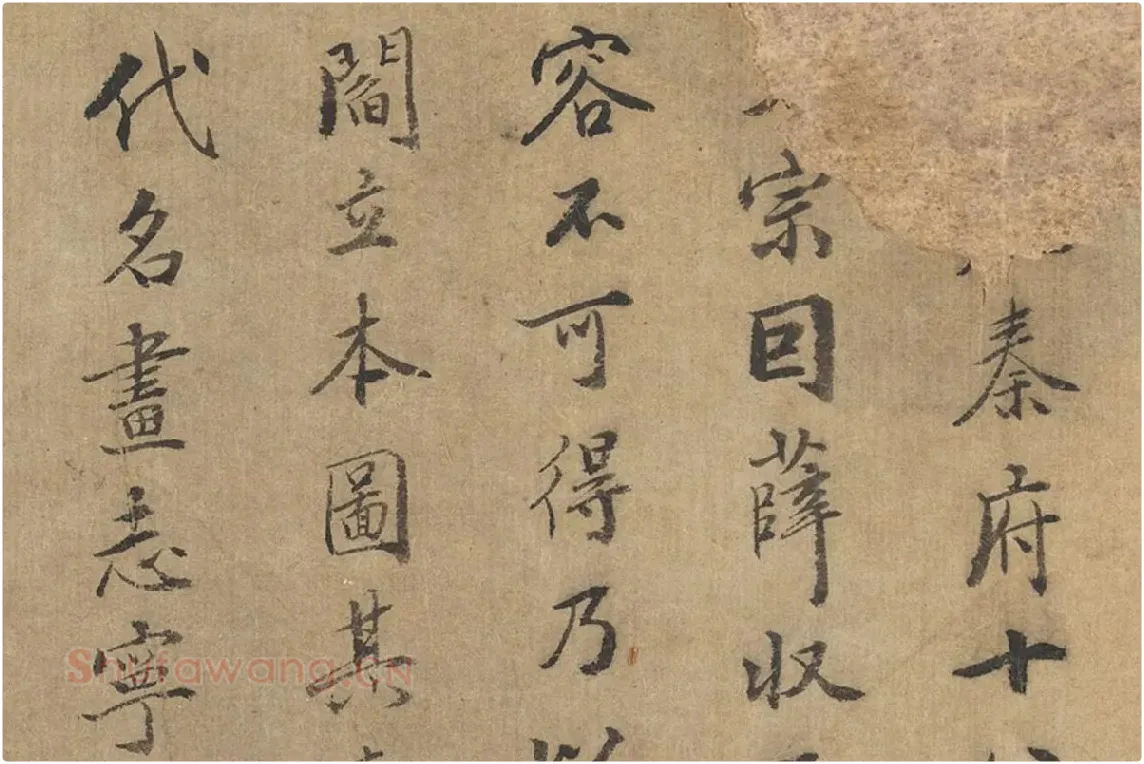 秦府十
宗回薛収
容不可得乃
閻立本圖其
代名畫志寧
Shufawang.CN